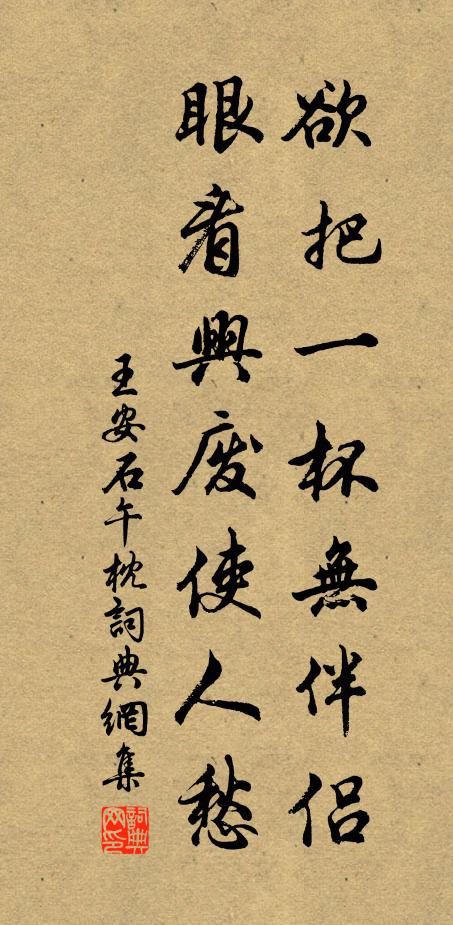 欲把一杯無伴侶
眼看興廢使人愁
王安石午枕詞典網集
詞典網印